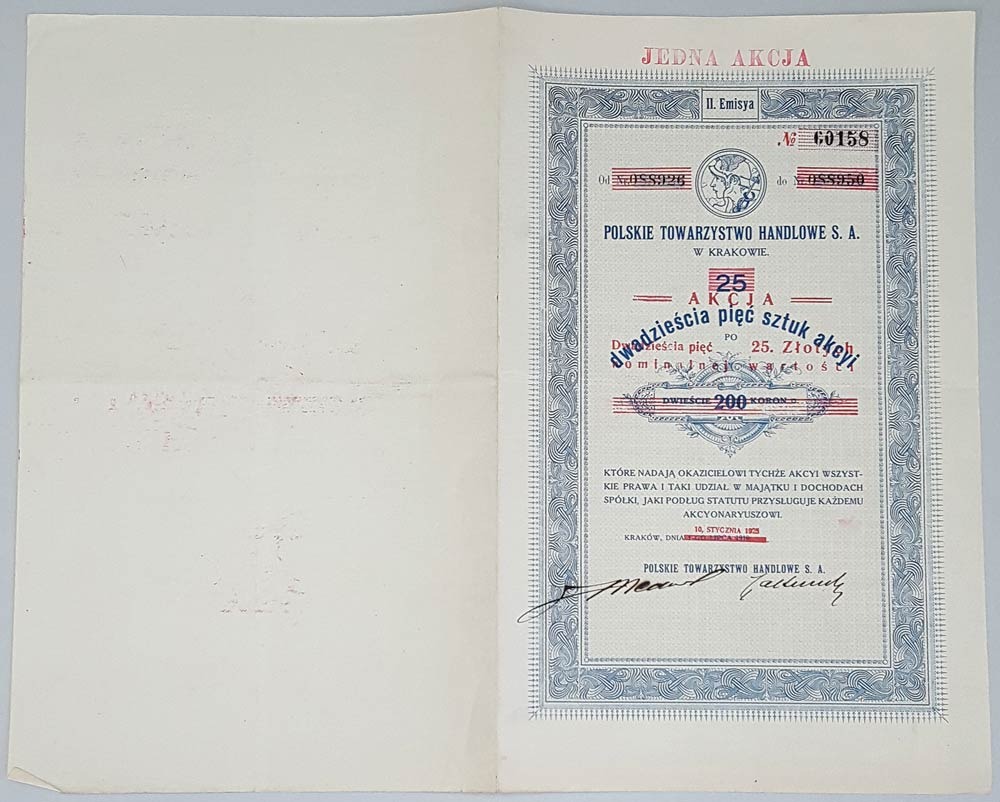 JEDNA AKCJA
II. Emisya
№ 60158
Od № 088926 do № 088950
POLSKIE TOWARZYSTWO HANDLOWE S. A.
W KRAKOWIE.
25
AKCJA
dwadzieścia pięć sztuk akcyi
PO
Dwadzieścia pięć 25. Złotych
nominalnej wartości
DWIEŚCIE 200 KORON
KTÓRE NADAJĄ OKAZICIELOWI TYCHŻE AKCYI WSZYST-
KIE PRAWA I TAKI UDZIAŁ W MAJĄTKU I DOCHODACH
SPÓŁKI, JAKI PODŁUG STATUTU PRZYSŁUGUJE KAŻDEMU
AKCYONARYUSZOWI.
10, STYCZNIA 1925
KRAKÓW, DNIA LIPCA
POLSKIE TOWARZYSTWO HANDLOWE S. A.